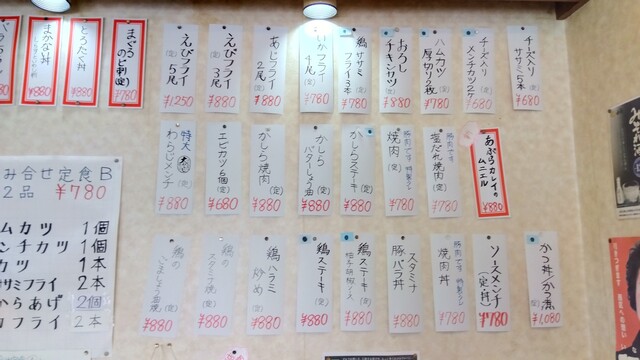 チーズ入り
ササミ5本(定)
¥680
チーズ入り
メンチカツ2ケ
¥680
ハムカツ
厚切り2枚(定)
¥780
おろし
チキンカツ(定)
¥880
鶏ササミ
フライ3本(定)
¥780
いかフライ
4尾(定)
¥780
あじフライ
2尾(定)
¥880
えびフライ
(定)3尾
¥880
えびフライ
(定)5尾
¥1250
まぐろ
のど刺(定)
¥780
とろたく丼
¥880
まかない丼
¥880
あぶらカレイの
ムニエル
¥880
豚肉です
塩だれ焼肉
(定)
¥780
豚肉です
焼肉(定)
¥780
かしらステーキ
(定)
¥880
かしら
バターしょう油(定)
¥880
かしら焼肉
(定)
¥880
エビカツ6個(定)
¥680
特大
わらじメンチ
(定)
¥880
かつ丼/かつ煮
(定)
¥1,080
ソースメンチ
(定・丼)
¥780
豚肉です
焼肉丼
¥780
スタミナ
豚バラ丼
¥880
鶏ステーキ(定)
柚子胡椒ソース
¥880
鶏ステーキ
(定)
¥880
鶏ハラミ
炒め(定)
¥880
鶏の
スタミナ焼(定)
¥880
鶏の
ごましょう油焼(定)
¥880
み合せ定食B
2品 ¥780
ムカツ 1個
ンチカツ 1個
カツ 1本
ササミフライ 2本
からあげ 2個
カフライ 2本